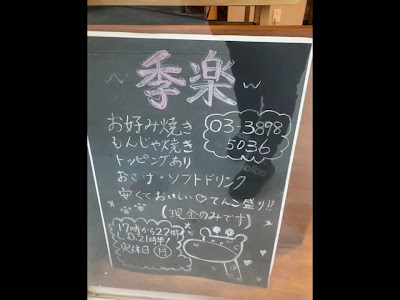 季楽
お好み焼き
もんじゃ焼き
トッピングあり
03-3898
5036
おさけ・ソフトドリンク
安くておいしい♡てんこ盛り!!
(現金のみです)
17時から22時
L.O.21時半!
定休日(月)